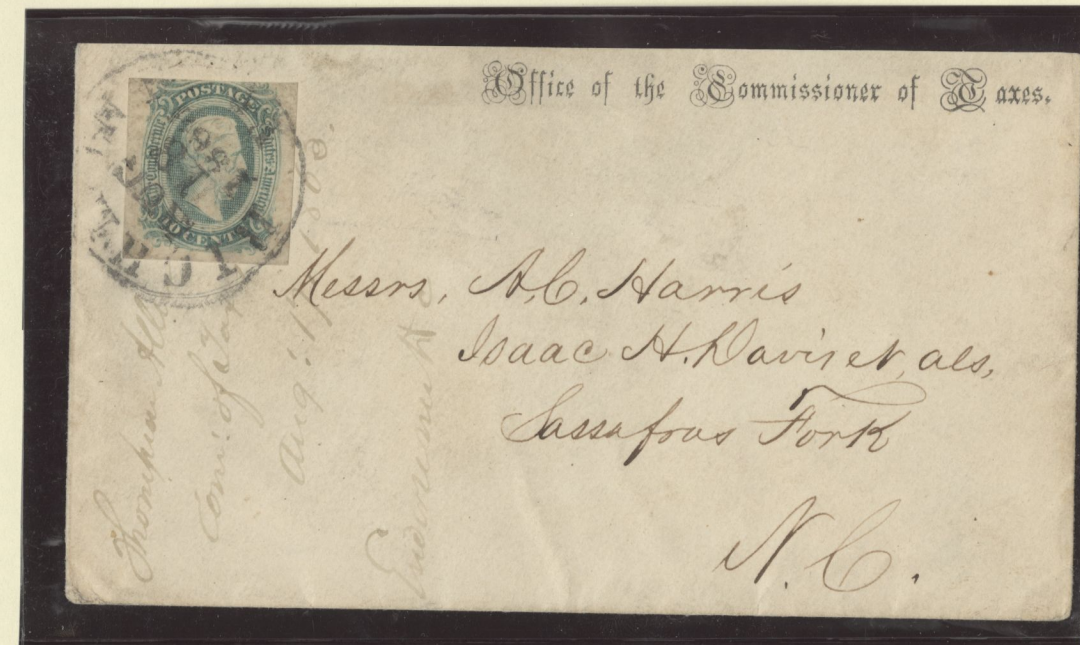 Office of the Commissioner of Taxes.
POSTAGE
CENTS
RICH
AUG
Messrs, A.C. Harris
Isaac H. Davis et als,
Sassafras Fork
N.C.
Thompson All
Com: of Tax
Aug: 1st 1863